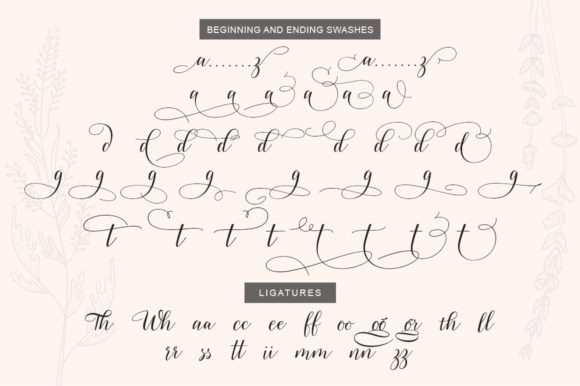 BEGINNING AND ENDING SWASHES
a.......z a.......z
a a a a a a
d d d d d d d d d
g g g g g g g g g
t t t t t t t t
LIGATURES
Th Wh aa cc ee ff oo oo or th ll
rr ss tt ii mm nn zz